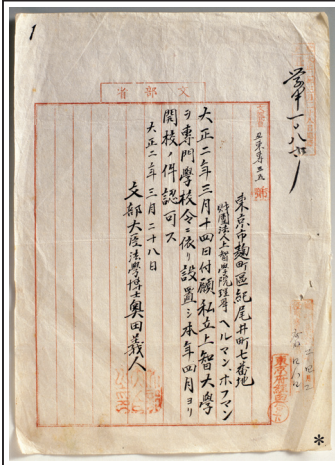 1
文部省
丑東專五五
號
東京市麹町區紀尾井町七番地
財團法人上智學院理事
ヘルマン、ホフマン
大正二年三月十四日付願私立上智大學
ヲ專門學校令ニ依リ設置シ本年四月ヨリ
開校ノ件認可ス
大正二年三月二十八日
文部大臣法學博士奥田義人
*